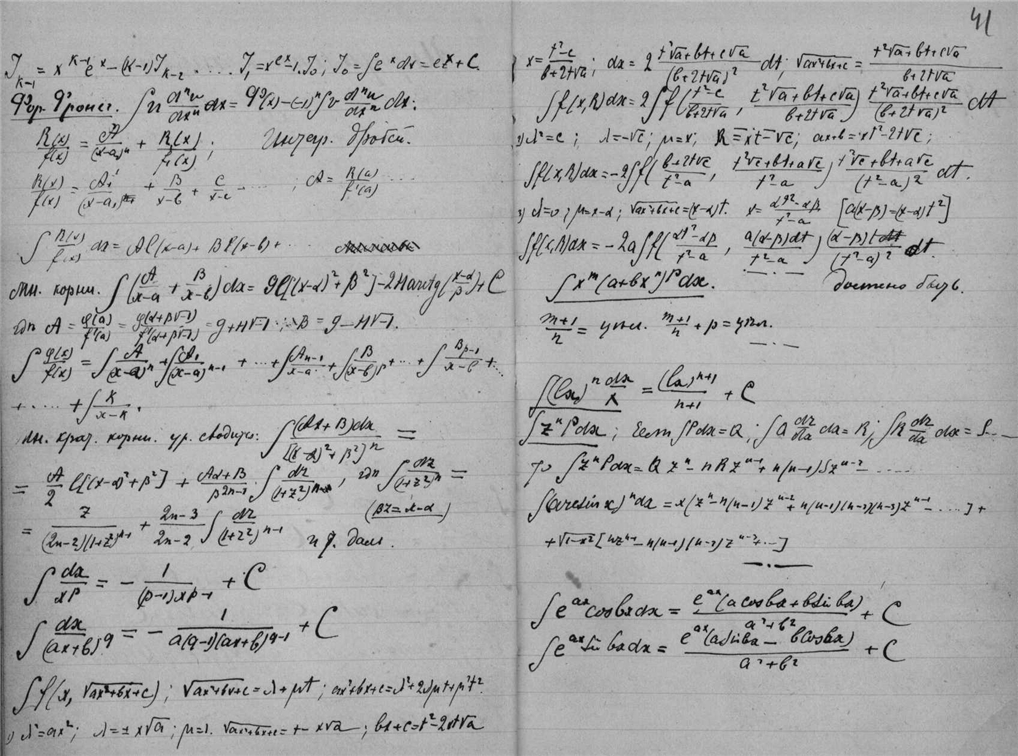 41
J_{K-1} = x^{K-1}e^x - (K-1)J_{K-2} ..... J_1 = xe^x - 1.J_0; J_0 = ∫e^x dx = e^x + C
∫u d^n u/dx^n dx = φ(x) - (-1)^n ∫v d^n u/dx^n dx.
R(x)/f(x) = A/(x-a)^n + R_1(x)/f_1(x); Интегр. дробей.
R(x)/f(x) = A_1/(x-a) + B/(x-b) + C/(x-c) ..... ; A = R(a)/f'(a) ....
∫ R(x)/f(x) dx = Al(x-a) + Bl(x-b) + ..
Мн. корни. ∫(A/(x-a) + B/(x-b))dx = gl[(x-α)²+β²] - 2H arctg((x-α)/β) + C
где A = φ(a)/f'(a) = φ(α+β√-1)/f'(α+β√-1) = g+H√-1; B = g-H√-1.
∫ φ(x)/f(x) = ∫ A/(x-a)^n + ∫ A_1/(x-a)^{n-1} + ... + ∫ A_{n-1}/(x-a) + ∫ B/(x-b)^p + ... + ∫ B_{p-1}/(x-b) + ..
+ ..... + ∫ K/(x-k).
Мн. крат. корни. ур. сводится: ∫ (Ax+B)dx/[(x-α)²+β²]^n =
= A/2 l[(x-α)²+β²] + (Aα+B)/β^{2n-1} ∫ dz/(1+z²)^n, где ∫ dz/(1+z²)^n =
(βz = x-α)
= z/((2n-2)(1+z²)^{n-1}) + (2n-3)/(2n-2) ∫ dz/(1+z²)^{n-1} и т. дал.
∫ dx/x^p = - 1/((p-1)x^{p-1}) + C
∫ dx/(ax+b)^q = - 1/(a(q-1)(ax+b)^{q-1}) + C
∫f(x, √(ax²+bx+c)); √(ax²+bx+c) = λ+μt; ax²+bx+c = λ²+2λμt+μ²t².
1) λ² = ax²; λ = ±x√a; μ=1. √(ax²+bx+c) = t - x√a; bx+c = t²-2xt√a
x = (t²-c)/(b+2t√a); dx = 2 (t²√a+bt+c√a)/(b+2t√a)² dt; √(ax²+bx+c) = (t²√a+bt+c√a)/(b+2t√a)
∫f(x,R)dx = 2∫f((t²-c)/(b+2t√a), (t²√a+bt+c√a)/(b+2t√a)) (t²√a+bt+c√a)/(b+2t√a)² dt
2) λ² = c; λ = -√c; μ = x; R = xt-√c; ax+b = xt²-2t√c;
∫f(x,R)dx = -2∫f((b+2t√c)/(t²-a), (t²√c+bt+a√c)/(t²-a)) (t²√c+bt+a√c)/(t²-a)² dt.
3) λ=0; μ=x-α; √(ax²+bx+c) = (x-α)t. x = (αt²-aβ)/(t²-a) [a(x-β) = (x-α)t²]
∫f(x,R)dx = -2a∫f((αt²-aβ)/(t²-a), a(α-β)t/(t²-a)) (α-β)tdt/(t²-a)²
∫x^m(a+bx^n)^p dx. должно быть.
(m+1)/n = целы. (m+1)/n + p = целы.
∫(lx)^n dx/x = (lx)^{n+1}/(n+1) + C
∫z^n Pdx; Если ∫Pdx = Q; ∫Q dz/dx dx = R; ∫R dz/dx dx = S....
то ∫z^n Pdx = Qz^n - nRz^{n-1} + n(n-1)Sz^{n-2} - .......
∫(arcsin x)^n dx = x[z^n - n(n-1)z^{n-2} + n(n-1)(n-2)(n-3)z^{n-4} .....] +
+ √(1-x²)[nz^{n-1} - n(n-1)(n-2)z^{n-3} + ...]
∫e^{ax} cos bx dx = e^{ax}(a cos bx + b sin bx)/(a²+b²) + C
∫e^{ax} sin bx dx = e^{ax}(a sin bx - b cos bx)/(a²+b²) + C